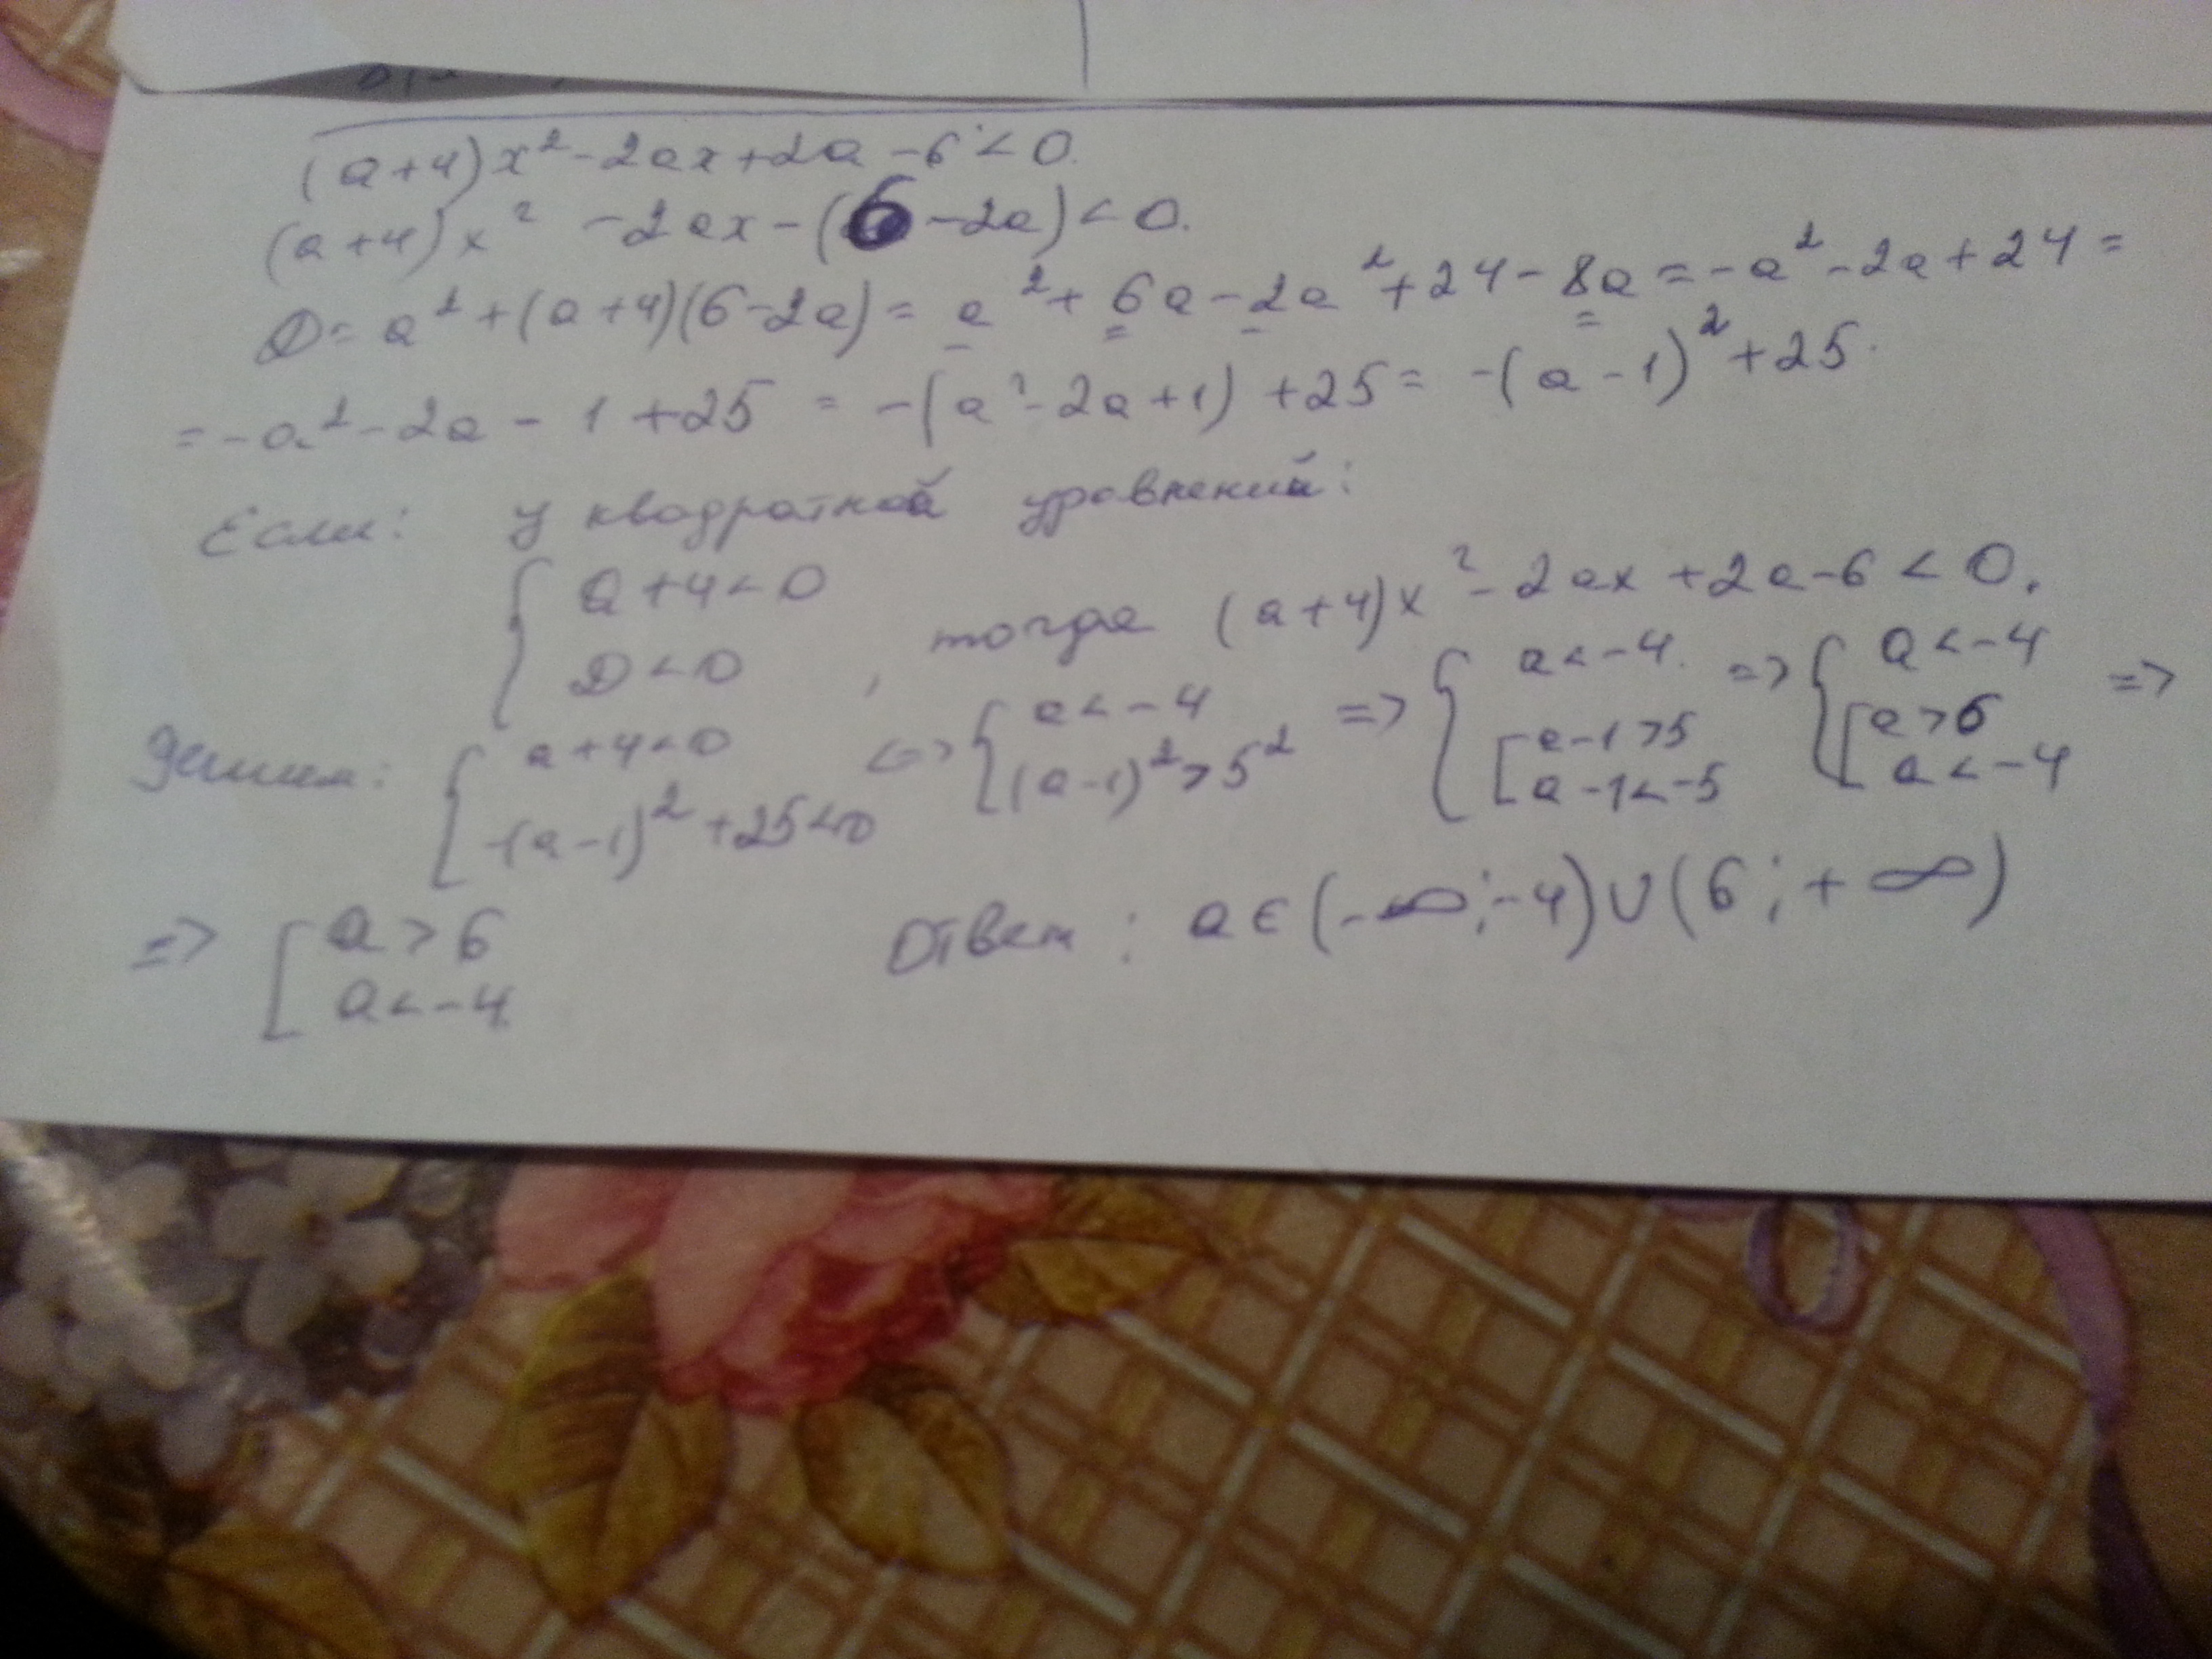 (a+4)x²-2ax+2a-6<0.
(a+4)x² -2ax-(6-2a)<0.
D=a²+(a+4)(6-2a)=a²+6a-2a²+24-8a=-a²-2a+24=
=-a²-2a-1+25=-(a²-2a+1)+25=-(a-1)²+25.
Если: у квадратной уровнений:
{a+4<0
D<0, тогда (a+4)x²-2ax+2a-6<0.
Решим: {a+4<0
-(a-1)²+25<0 <=> {a<-4
(a-1)²>5² => {a<-4.
[a-1>5
a-1<-5 => {a<-4
[a>6
a<-4 =>
=> [a>6
a<-4
Ответ: a∈(-∞;-4)∪(6;+∞)